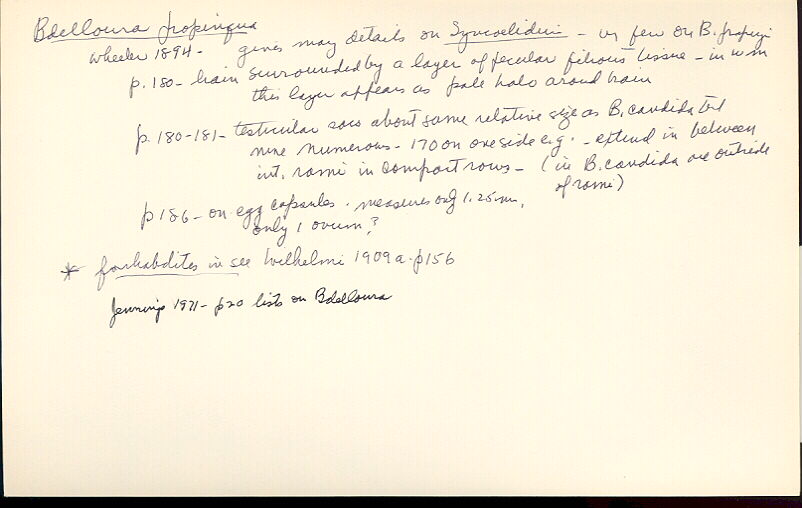 Bdelloura propinqua
Wheeler 1894 - gives many details on Syncoelidium - v few on B. propinq
p. 180 - brain surrounded by a layer of peculiar fibrous tissue - in wm
this layer appears as pale halo around brain
p. 180-181 - testicular sacs about same relative size as B. candida but
more numerous - 170 on one side e.g. - extend in between
int. rami in compact rows - (in B. candida are outside
of rami)
p 186 - on egg capsules. measures only 1.25 mm,
only 1 ovum?
* for rhabdites in see Wilhelmi 1909a. p156
Jennings 1971 - p20 lists on Bdelloura